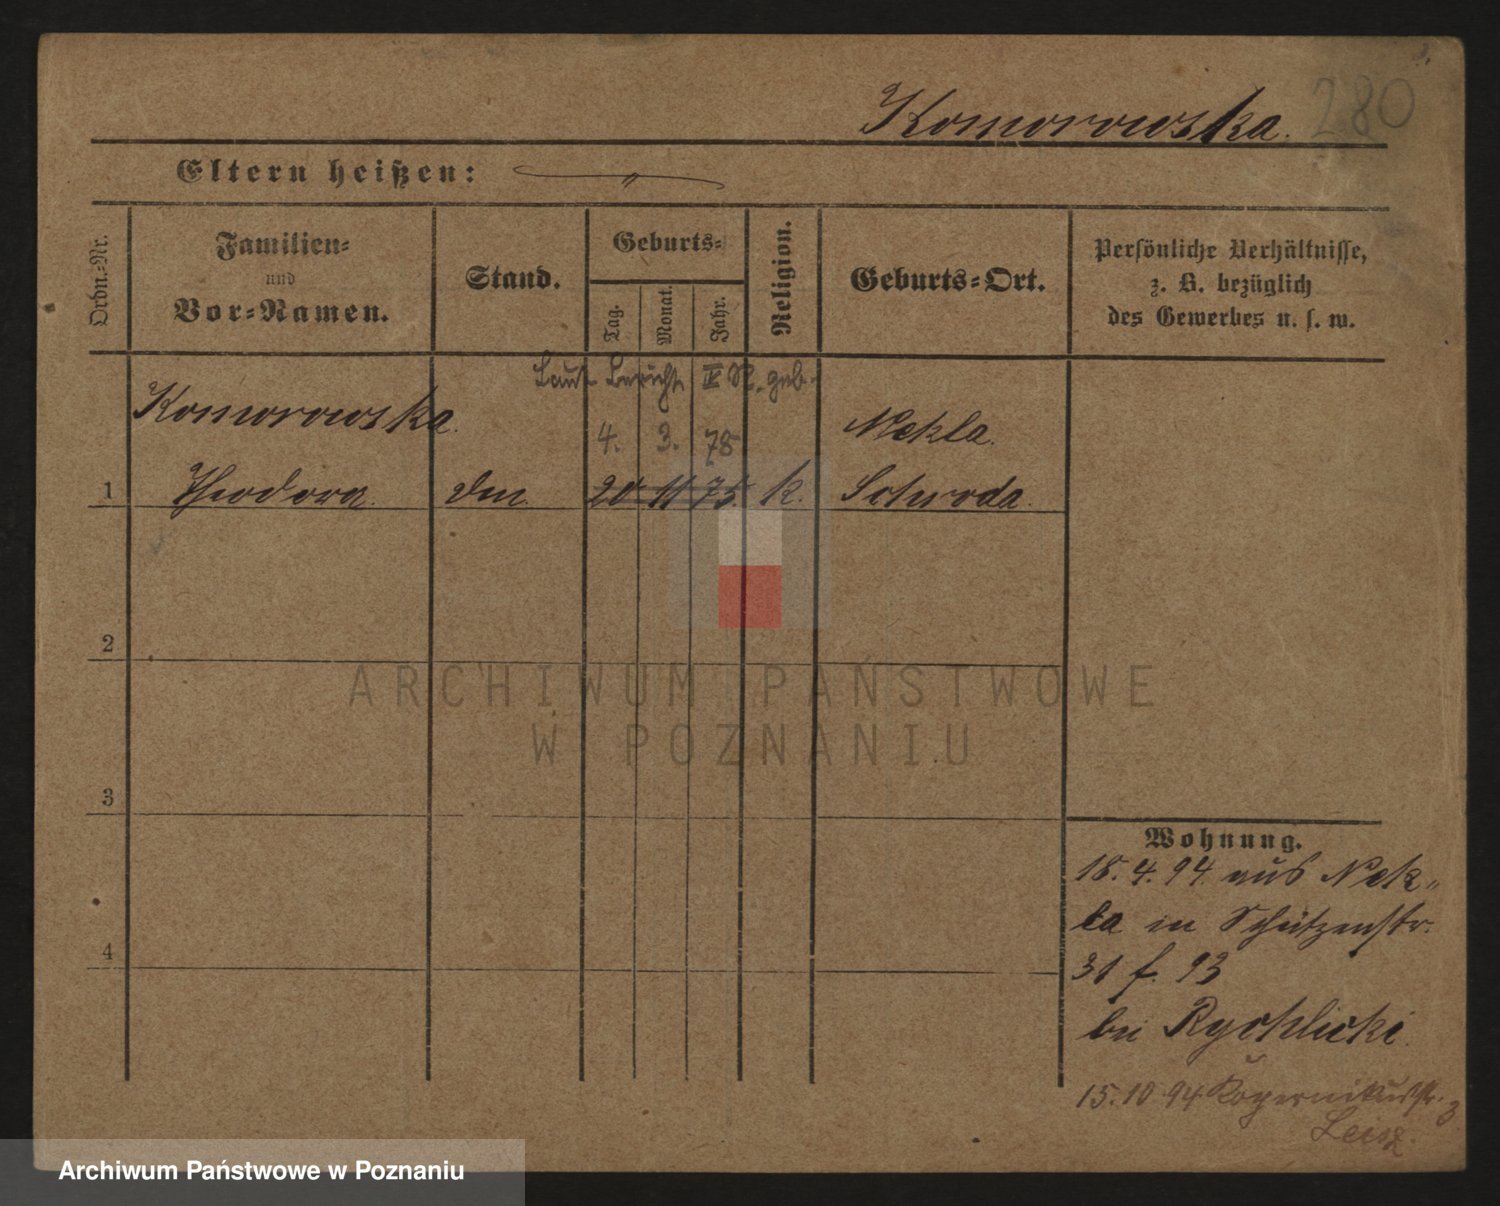 Komorowska. 280
Eltern heißen: "
Ordn.-Nr.
Familien-
und
Vor-Namen.
Stand.
Geburts-
Tag.
Monat.
Jahr.
Religion.
Geburts-Ort.
Persönliche Verhältnisse,
z. B. bezüglich
des Gewerbes u. s. w.
Laut Bericht IV R. geb.
Komorowska.
4. 3. 78
Nekla.
1 Theodora. 20 11 75. k. Schroda.
2
ARCHIWUM PAŃSTWOWE
W POZNANIU
3
4
Wohnung.
18. 4. 94 aus Nek-
la in Schützenstr.
31 f. 93
bei Rychlicki.
15. 10 94 Kopernikusstr. 3
Archiwum Państwowe w Poznaniu